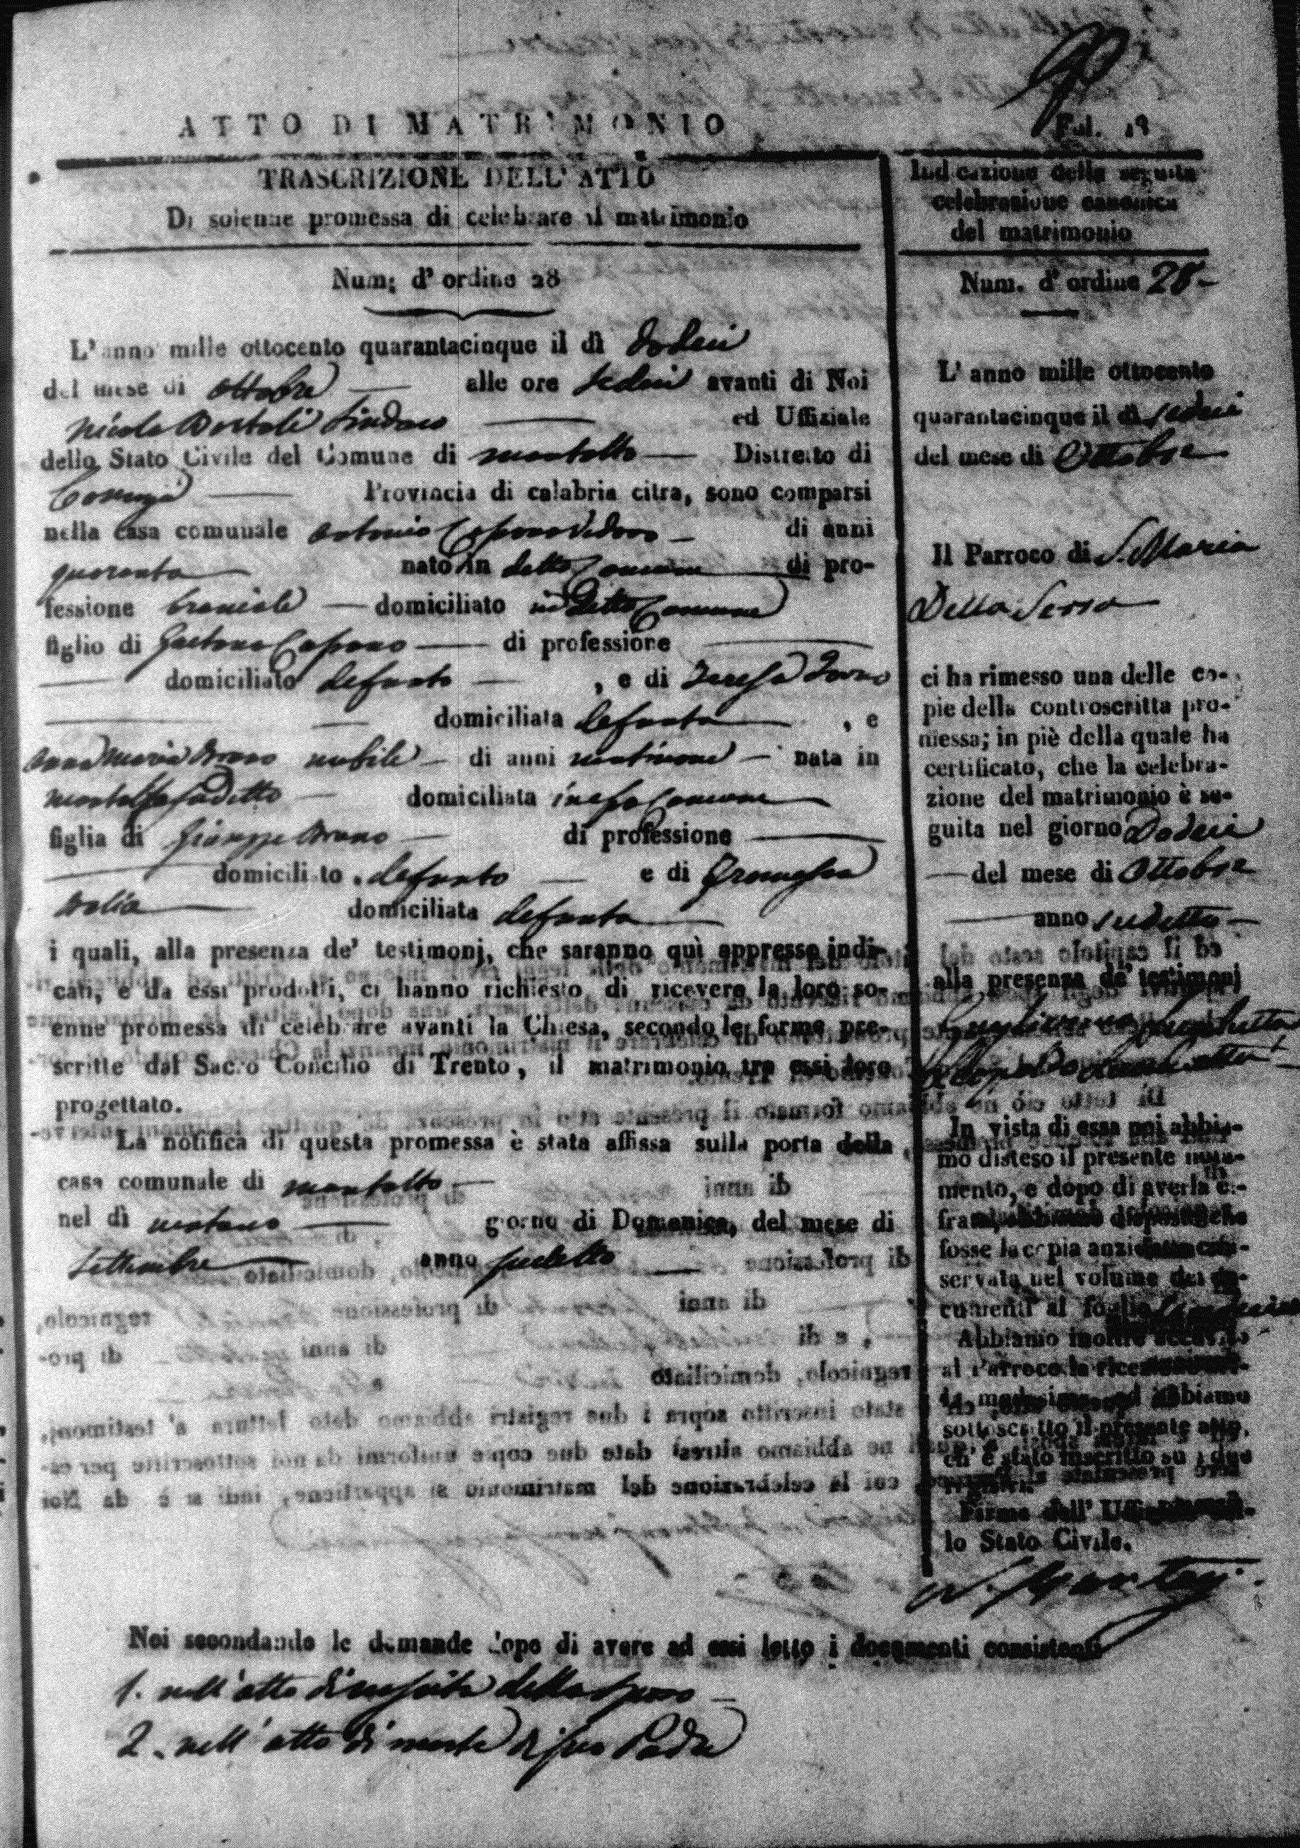 ATTO DI MATRIMONIO
Fol. 19
TRASCRIZIONE DELL' ATTO
Di solenne promessa di celebrare il matrimonio
Num: d' ordine 28
L' anno mille ottocento quarantacinque il dì dodeci
del mese di ottobre alle ore sedeci avanti di Noi
Nicola Sindaco ed Uffiziale
dello Stato Civile del Comune di Montalto Distretto di
Cosenza Provincia di calabria citra, sono comparsi
nella casa comunale Antonio Capano Vedovo di anni
quaranta nato in detto Comune di pro-
fessione braciale domiciliato in detto Comune
figlio di Gaetano Capano di professione
domiciliato defunto , e di Teresa
domiciliata defunta , e
Anna Maria Bruno nubile di anni nata in
Montalto sudetto domiciliata in esso Comune
figlia di Giuseppe Bruno di professione
domiciliato defunto e di
domiciliata defunta
i quali, alla presenza de' testimonj, che saranno quì appresso indi-
cati, e da essi prodotti, ci hanno richiesto di ricevere la loro so-
enne promessa di celebrare avanti la Chiesa, secondo le forme pre-
scritte dal Sacro Concilio di Trento, il matrimonio tra essi loro
progettato.
La notifica di questa promessa è stata affissa sulla porta della
casa comunale di Montalto
nel dì giorno di Domenica, del mese di
Settembre anno sudetto
Indicazione della seguita
celebrazione canonica
del matrimonio
Num. d' ordine 28
L' anno mille ottocento
quarantacinque il dì sedeci
del mese di Ottobre
Il Parroco di S. Maria
Della Serra
ci ha rimesso una delle co-
pie della controscritta pro-
messa; in piè della quale ha
certificato, che la celebra-
zione del matrimonio è se-
guita nel giorno Dodeci
del mese di Ottobre
anno sudetto
alla presenza de' testimonj
Guglielmo
In vista di essa noi abbia-
mo disteso il presente notta-
mento, e dopo di averla ci-
frata, abbiamo disposto che
fosse la copia anzidetta con-
servata nel volume dei do-
cumenti al foglio
Abbiamo inoltre accusato
al Parroco la ricezione del-
la medesima, ed abbiamo
sottoscritto il presente atto,
ch' è stato inscritto su i due
registri.
Firma dell' Uffiziale del-
lo Stato Civile.
Noi secondando le domande dopo di avere ad essi letto i documenti consistenti
1. nell' atto di nascita dello sposo
2. nell' atto di morte di suo Padre